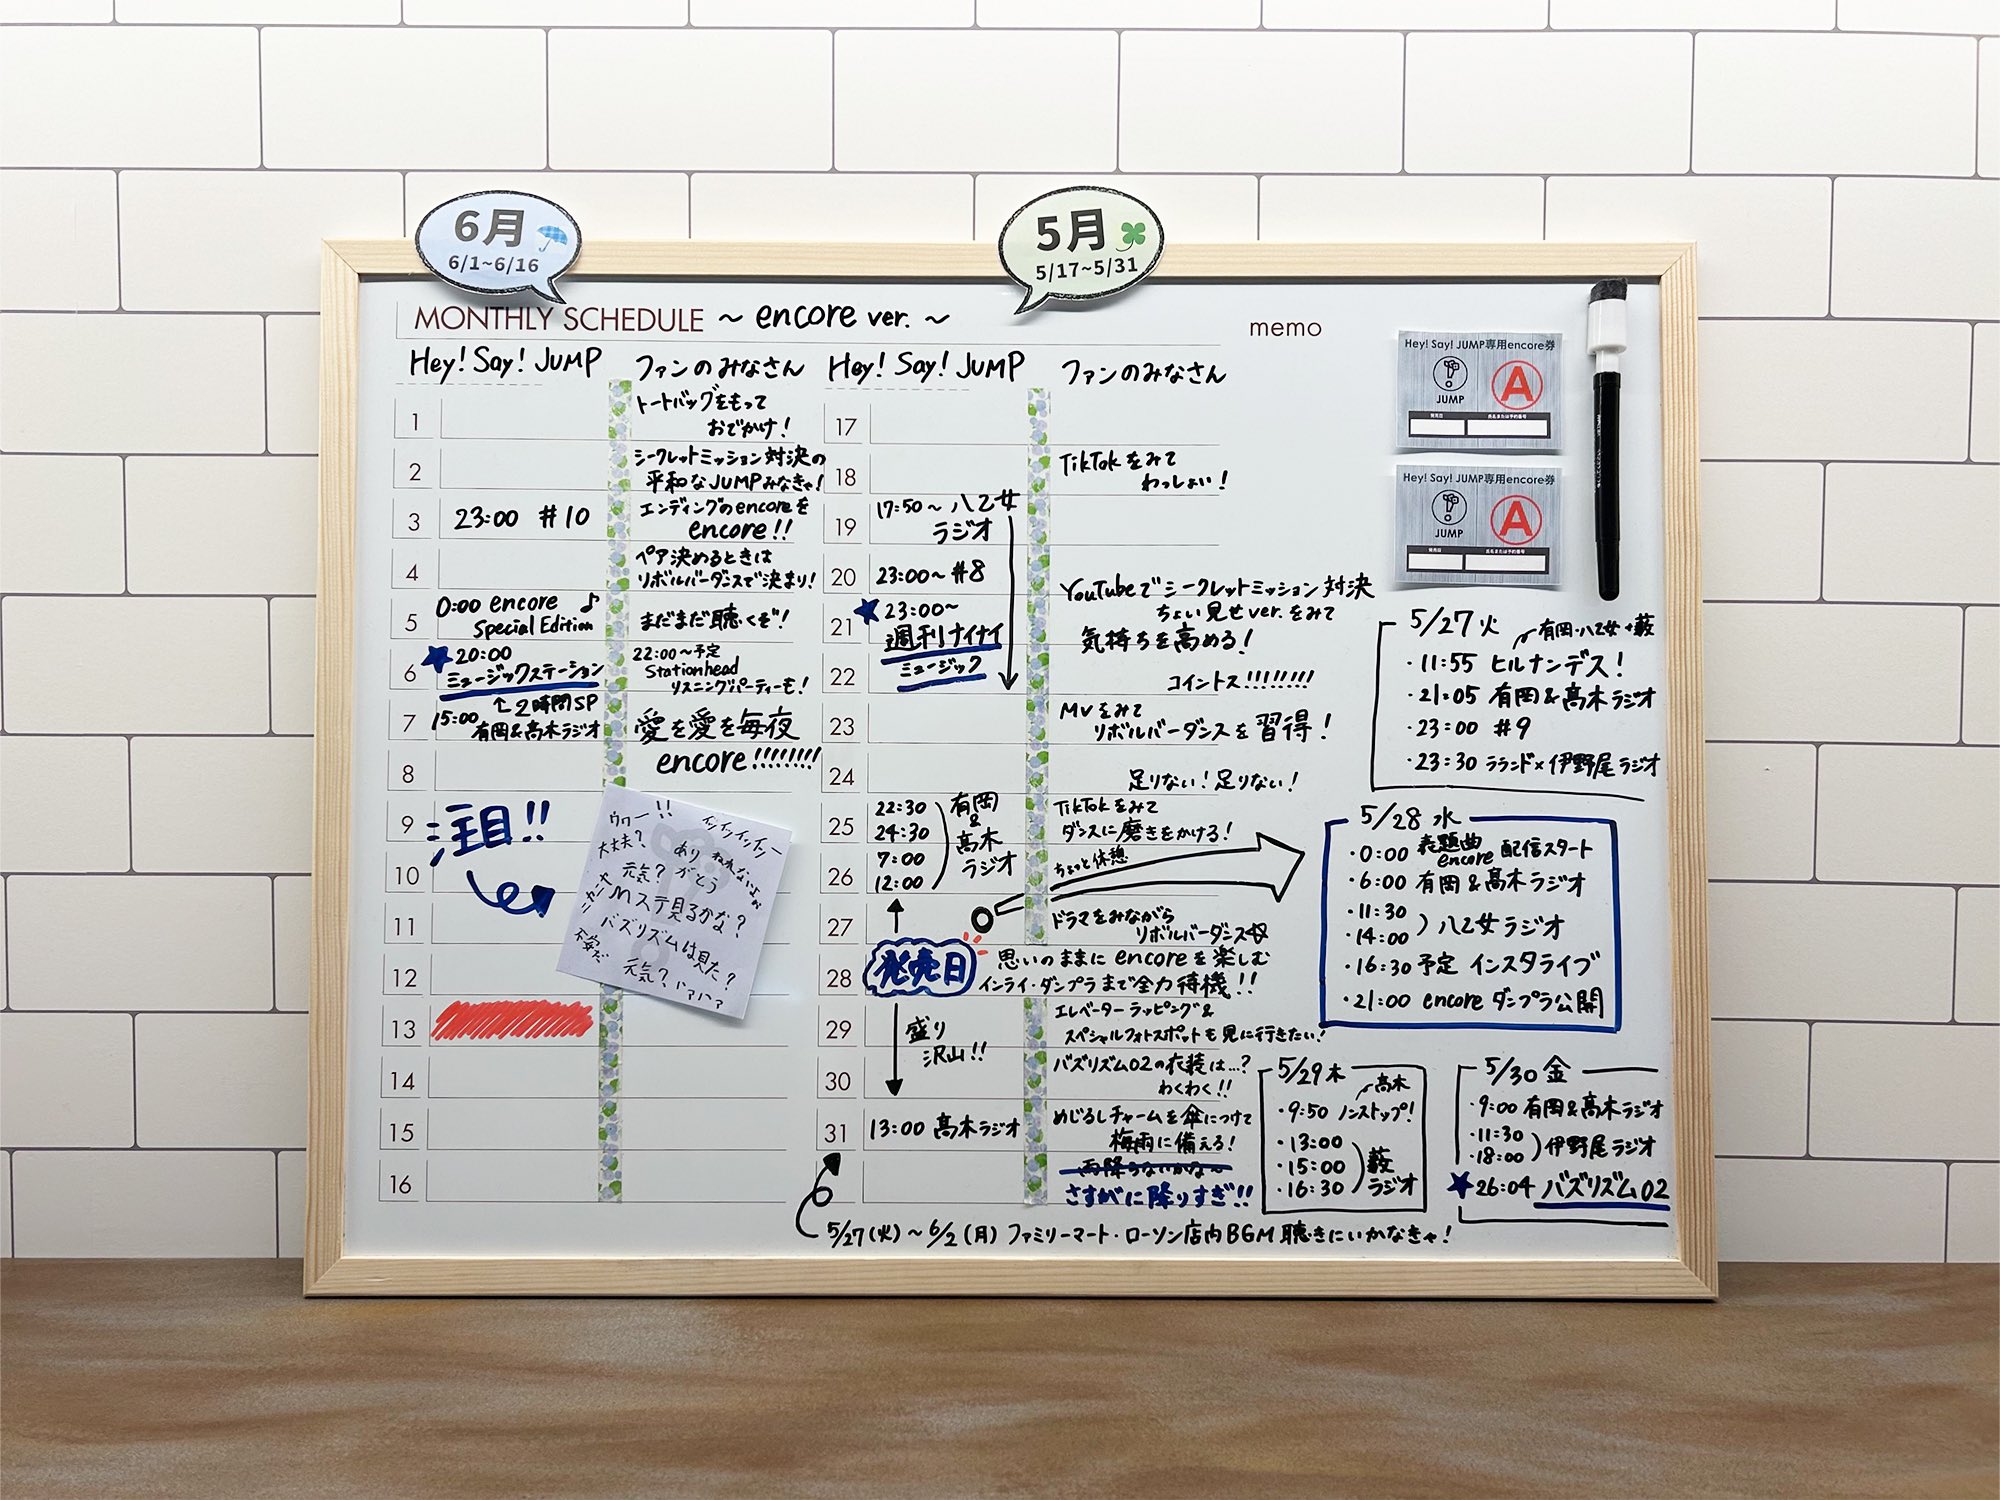 6月
6/1~6/16
5月
5/17~5/31
MONTHLY SCHEDULE ~ encore ver. ~
memo
Hey! Say! JUMP
ファンのみなさん
1
トートバッグをもって
おでかけ!
2
シークレットミッション対決の
平和なJUMPみなきゃ!
3
23:00 #10
エンディングのencoreを
encore!!
4
ペア決めるときは
リボルバーダンスで決まり!
5
0:00 encore ♪
Special Edition
まだまだ聴くぞ!
6
★20:00
ミュージックステーション
↑2時間SP
22:00~予定
Stationhead
リスニングパーティーも!
7
15:00
有岡&髙木ラジオ
愛を愛を毎夜
encore!!!!!!!!
8
9
注目!!
10
11
12
13
14
15
16
ウワー!!
イシイシイシイシー
大丈夫?
あり
がとう
ねれないよぉ
元気?
Mステ見るかな?
バズリズムは見た?
元気?ハァハァ
Hey! Say! JUMP
ファンのみなさん
17
18
TikTokをみて
わっしょい!
19
17:50~八乙女
ラジオ
20
23:00~#8
YouTubeでシークレットミッション対決
ちょい見せver.をみて
気持ちを高める!
21
★23:00~
週刊ナイナイ
ミュージック
22
コイントス!!!!!!!!
23
MVをみて
リボルバーダンスを習得!
24
足りない!足りない!
25
22:30
24:30
26
7:00
12:00
有岡
&
髙木
ラジオ
TikTokをみて
ダンスに磨きをかける!
ちょっと休憩
27
ドラマをみながら
リボルバーダンス
28
発売日
思いのままにencoreを楽しむ
インライ・ダンプラまで全力待機!!
29
盛り
沢山!!
エレベーターラッピング&
スペシャルフォトスポットも見に行きたい!
30
バズリズム02の衣装は…?
わくわく!!
31
13:00 髙木ラジオ
めじるしチャームを傘につけて
梅雨に備える!
雨降らないかな~
さすがに降りすぎ!!
5/27(火)~6/2(月)ファミリーマート・ローソン店内BGM聴きにいかなきゃ!
Hey! Say! JUMP専用encore券
JUMP
A
発売日
氏名または予約番号
Hey! Say! JUMP専用encore券
JUMP
A
発売日
氏名または予約番号
5/27火
有岡・八乙女・薮
・11:55 ヒルナンデス!
・21:05 有岡&髙木ラジオ
・23:00 #9
・23:30 ラランド×伊野尾ラジオ
5/28水
・0:00 表題曲 encore 配信スタート
・6:00 有岡&髙木ラジオ
・11:30
・14:00
八乙女ラジオ
・16:30予定 インスタライブ
・21:00 encoreダンプラ公開
5/29木
髙木
・9:50 ノンストップ!
・13:00
・15:00
・16:30
薮
ラジオ
5/30金
・9:00 有岡&髙木ラジオ
・11:30
・18:00
伊野尾ラジオ
★26:04 バズリズム02